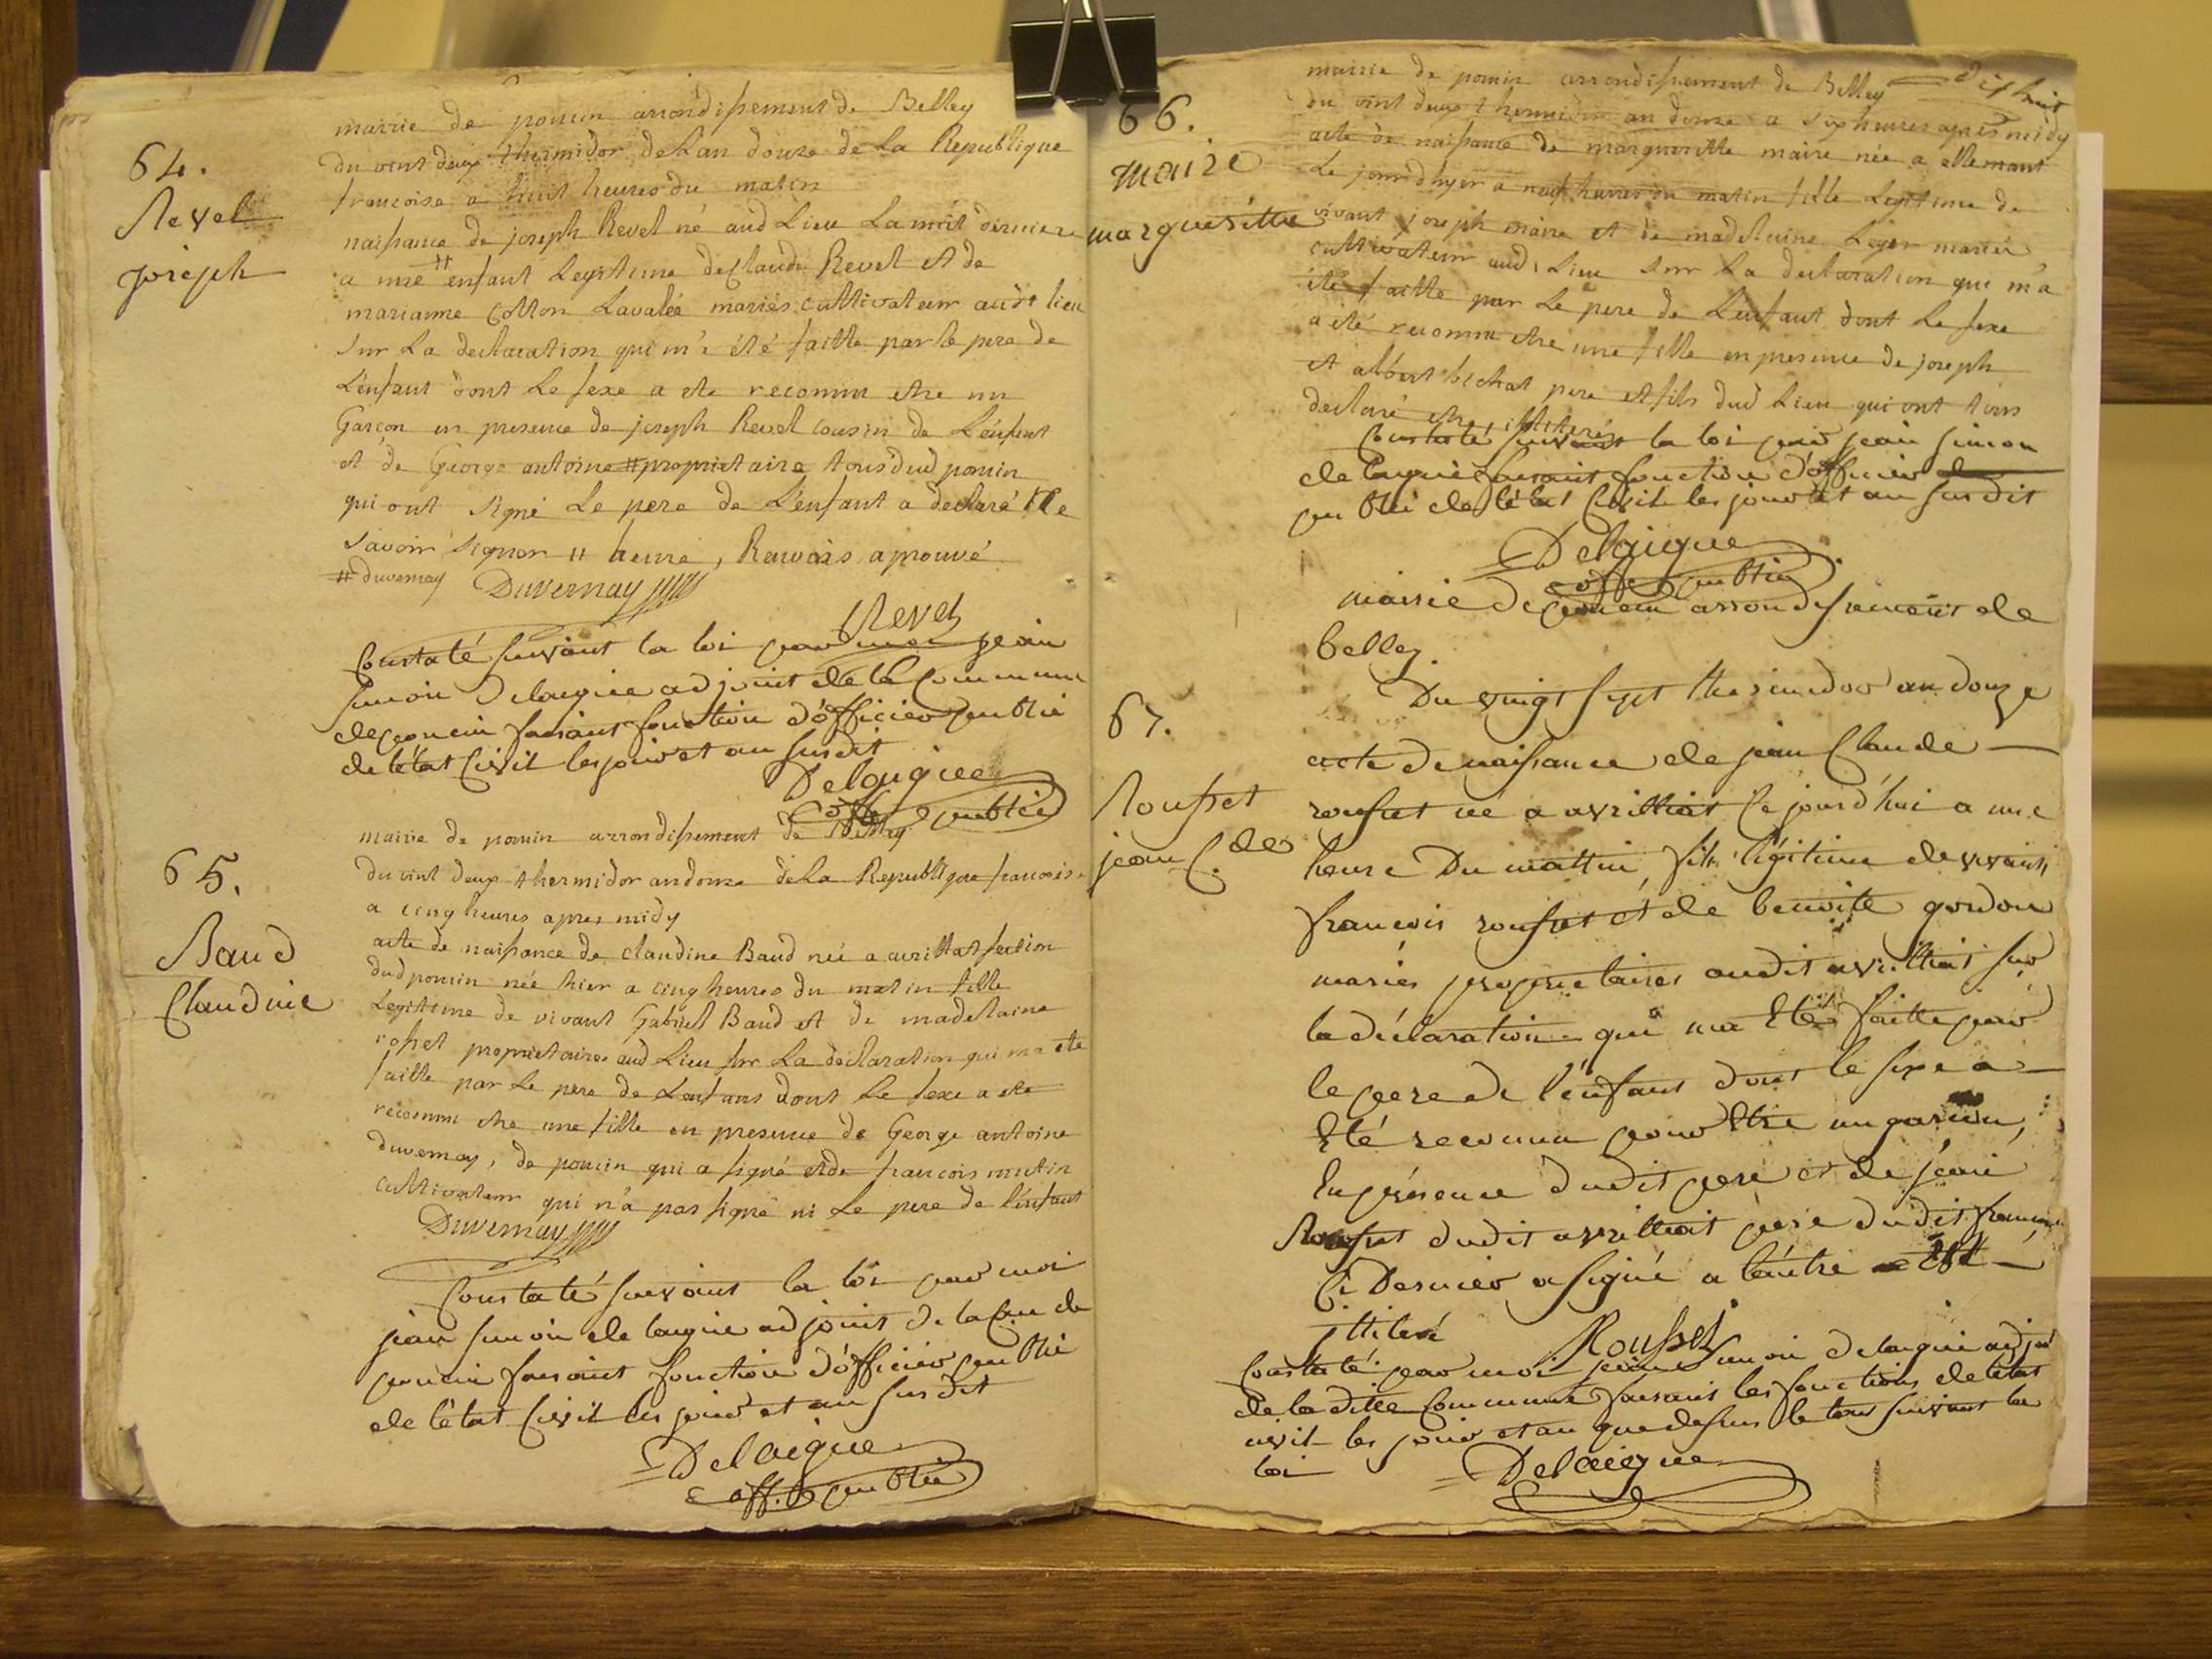 64.
Revel
joseph
mairie de poncin arrondissement de Belley
du vint deux thermidor de Lan douze de La Republique
francoise a huit heures du matin
naissance de joseph Revel né aud Lieu La nuit derniere
a une # enfant Legitime de claude Revel et de
marianne Cotton Lavalée mariés cultivateur audt lieu
sur La declaration qui m'a été faitte par le pere de
L'enfant dont Le sexe a ete reconnu etre un
Garçon en presence de joseph Revel cousin de L'enfant
et de George antoine # proprietaire tous dud poncin
qui ont signé Le pere de L'enfant a declaré ne
savoir signer # heure, Ranvois aprouvé
# duvernay Duvernay
Revel
Constaté suivant la loi par moi jean
simon Delaigue adjoint de la Commune
de poncin faisant fonction d'officier public
de l'état Civil les jour et an susdit
Delaigue
off. public
65.
Baud
Claudine
mairie de poncin arrondissement de Belley
du vint deux thermidor an douze de La Republique francoise
a cinq heures apres midy
acte de naissance de claudine Baud née a avrillat section
dud poncin née hier a cinq heures du matin fille
Legitime de vivant Gabriel Baud et de madelaine
rosset proprietaires aud Lieu sur La declaration qui ma ete
faitte par Le pere de Lenfans dont Le sexe a ete
reconnu etre une fille en presence de George antoine
duvernay, de poncin qui a signé et de francois mutin
cultivateur qui n'a pas signé ni Le pere de l'enfant
Duvernay
Constaté suivant la loi par moi
jean simon de laigue adjoint de la Cne de
poncin faisant fonction d'officier public
de l'état Civil les jour et an susdit
Delaigue
off. public
dix huit
66.
maire
marguesitte
mairie de poncin arrondissement de Belley
du vint deux thermidor an douze a six heures apres midy
acte de naissance de marguesitte maire née a allemant
Le jourdhyer a neuf heures du matin fille Legitime de
vivant joseph maire et de madelaine Leger mariés
cultivateur aud. Lieu sur La declaration qui m'a
été faitte par Le pere de L'enfant dont Le sexe
a été reconnu etre une fille en presence de joseph
et albert bichat pere et fils dud Lieu qui ont tous
declaré etre illiterés
Constaté suivant la loi par jean simon
de laigue faisant fonction d'officier
public de l'état Civil les jour et an susdit
Delaigue
off. public
mairie de poncin arrondissement de
belley
67.
Rousset
jean C.de
Du vingt sept thermidor an douze
acte de naissance de jean Claude
rousset né a avrilliat Ce jourd'hui a une
heure Du mattin, fils légitime de vivant
francois rousset et de benoite gordon
mariés proprietaires audit avrilliat sur
la déclaration qui ma Eté faitte par
le pere de l'enfant dont le sexe a
Eté reconnu pour Etre un garcon,
En présence dudit pere et de jean
Rousset dudit avrilliat pere dudit francois
Ce Dernier a signé a lautre Est
illiteré
Rousset
Constaté par moi jean simon Delaigue adjoi
de la ditte Commune faisant les fonctions de l'état
civil les jour et an que dessus le tout suivant la
loi
Delaigue